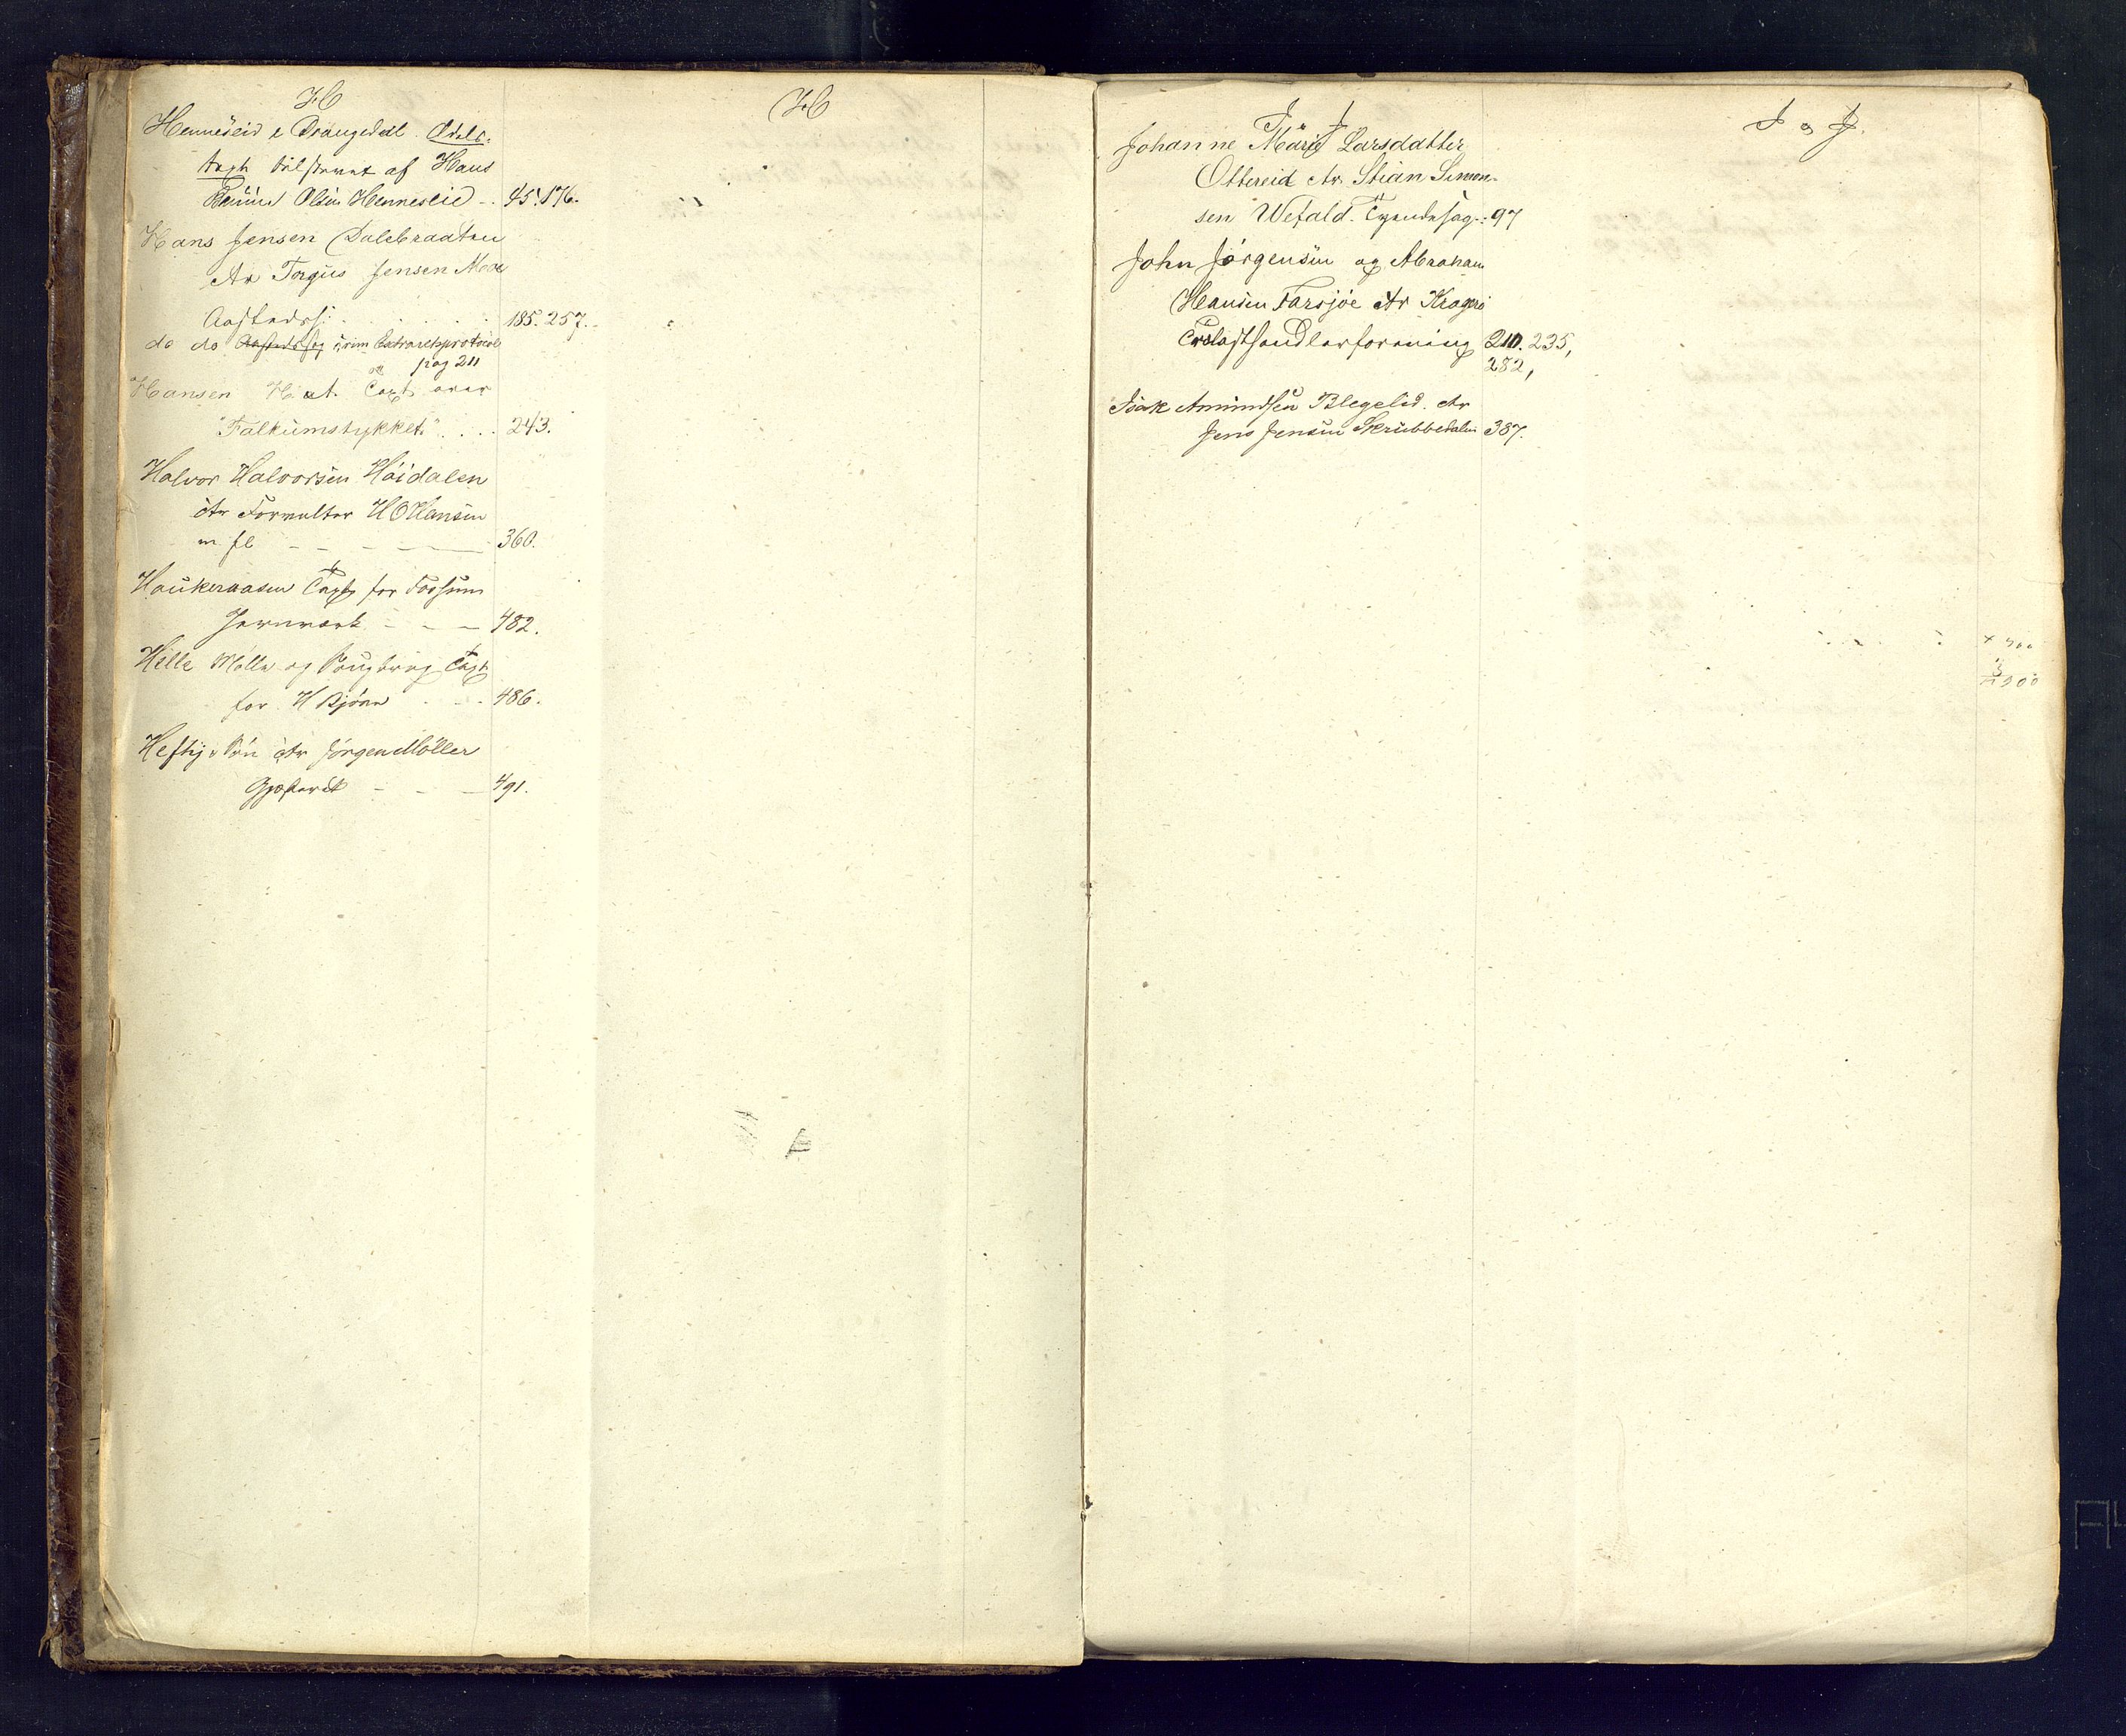 H
Henneseid i Drangedal. Odels-
taxt tilstevnt af Hans
Olsen Henneseid 45. 176.
Hans Jensen Dalsbraaten
Ctr Torgius Jensen Moe
Aastedss: 185. 257.
do do Aastedssag, i Extraretsprotocol
pag 211
Hansen H. at. Taxt over
"Falkumstykket" . . . . 243.
Halvor Halvorsen Höidalen
Ctr Forvalter H O Hansen
m. fl 360.
Haukeraasen Taxt for Fossum
Jernværk - - - 482.
Hille Mölle og Taxt
for H Björn 486.
Heftye & Sön Ctr Jörgen Möller
- - - 491.
H
I & J
Johanne Marie Larsdatter
Ottereid Ctr. Stian Simon-
sen Wefald. Tyendesag.. 97
John Jörgensen og Abraham
Hansen Farsjöe Ctr Kragerö
Trælasthandlerforening 210. 235,
282,
Isak Amundsen Blegelid. Ctr
Jens Jensen Skrubbedalen 387.
I og J.